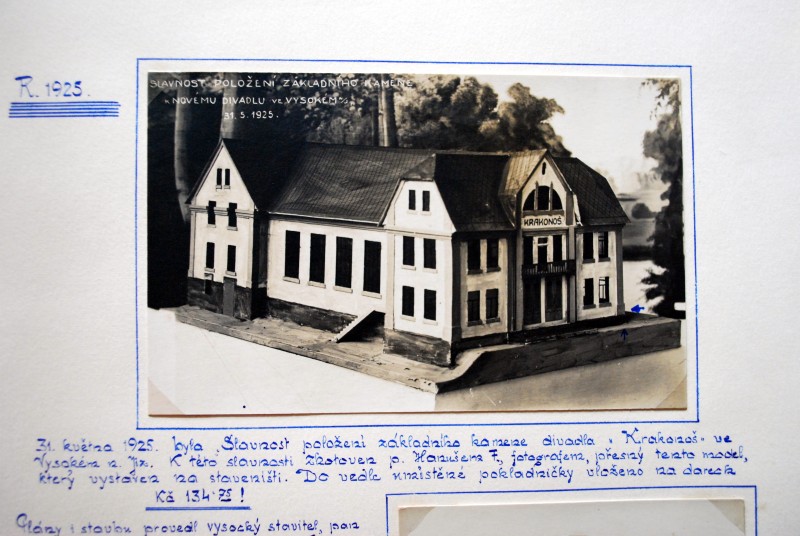 R. 1925.
SLAVNOST POLOŽENÍ ZÁKLADNÍHO KAMENE
K NOVÉMU DIVADLU VE VYSOKÉM n/J.
31. 5. 1925.
KRAKONOŠ
31. května 1925. byla „Slavnost položení základního kamene divadla „Krakonoš“ ve
Vysokém n. Jiz. K této slavnosti zhotoven p. Hanušem F., fotografem, přesný tento model,
který vystaven na staveništi. Do vedle umístěné pokladničky vloženo na darech
Kč 134·75 !
Plány i stavbu provedl vysocký stavitel, pan